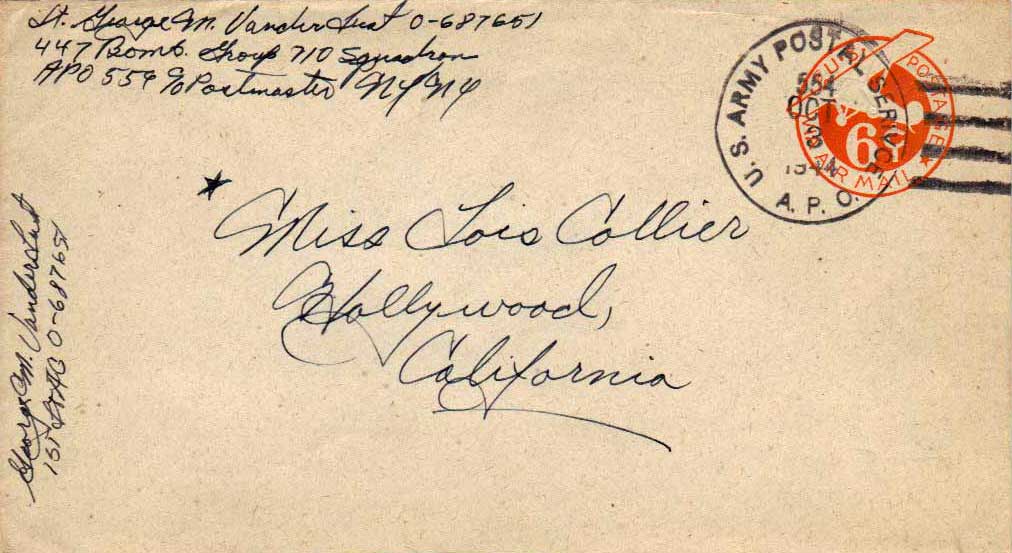 Lt. George M. Vander Lust 0-687651
447 Bomb. Group 710 Squadron
APO 559 c/o Postmaster NY NY
U. S. ARMY POSTAL SERVICE
A. P. O.
554
OCT
POSTAGE
6¢
AIR MAIL
Miss Lois Collier
Hollywood,
California
George M. Vander Lust
1st Lt AC 0-687651